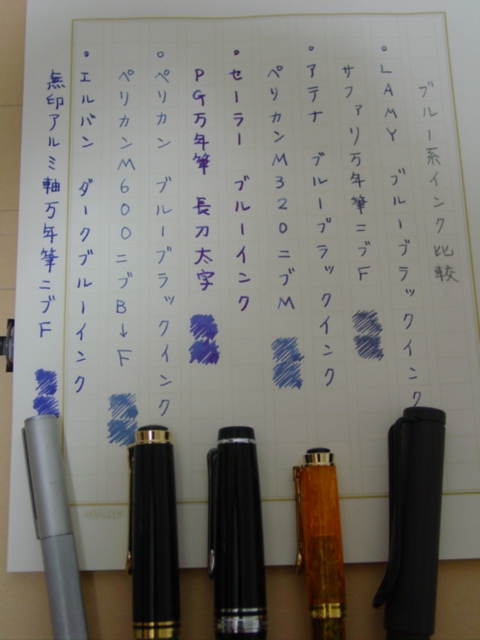 ブルー系インク比較
・LAMY ブルーブラックインク
サファリ万年筆ニブF
・アテナ ブルーブラックインク
ペリカンM320ニブM
・セーラー ブルーインク
PG万年筆 長刀太字
・ペリカン ブルーブラックインク
ペリカンM600ニブB→F
・エルバン ダークブルーインク
無印アルミ軸万年筆ニブF